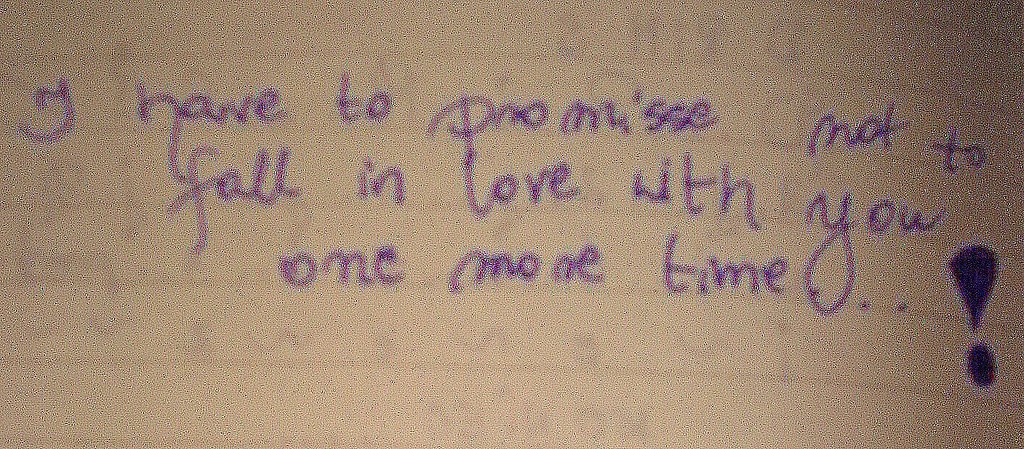 I have to promisse not to
fall in love with you
one more time...!